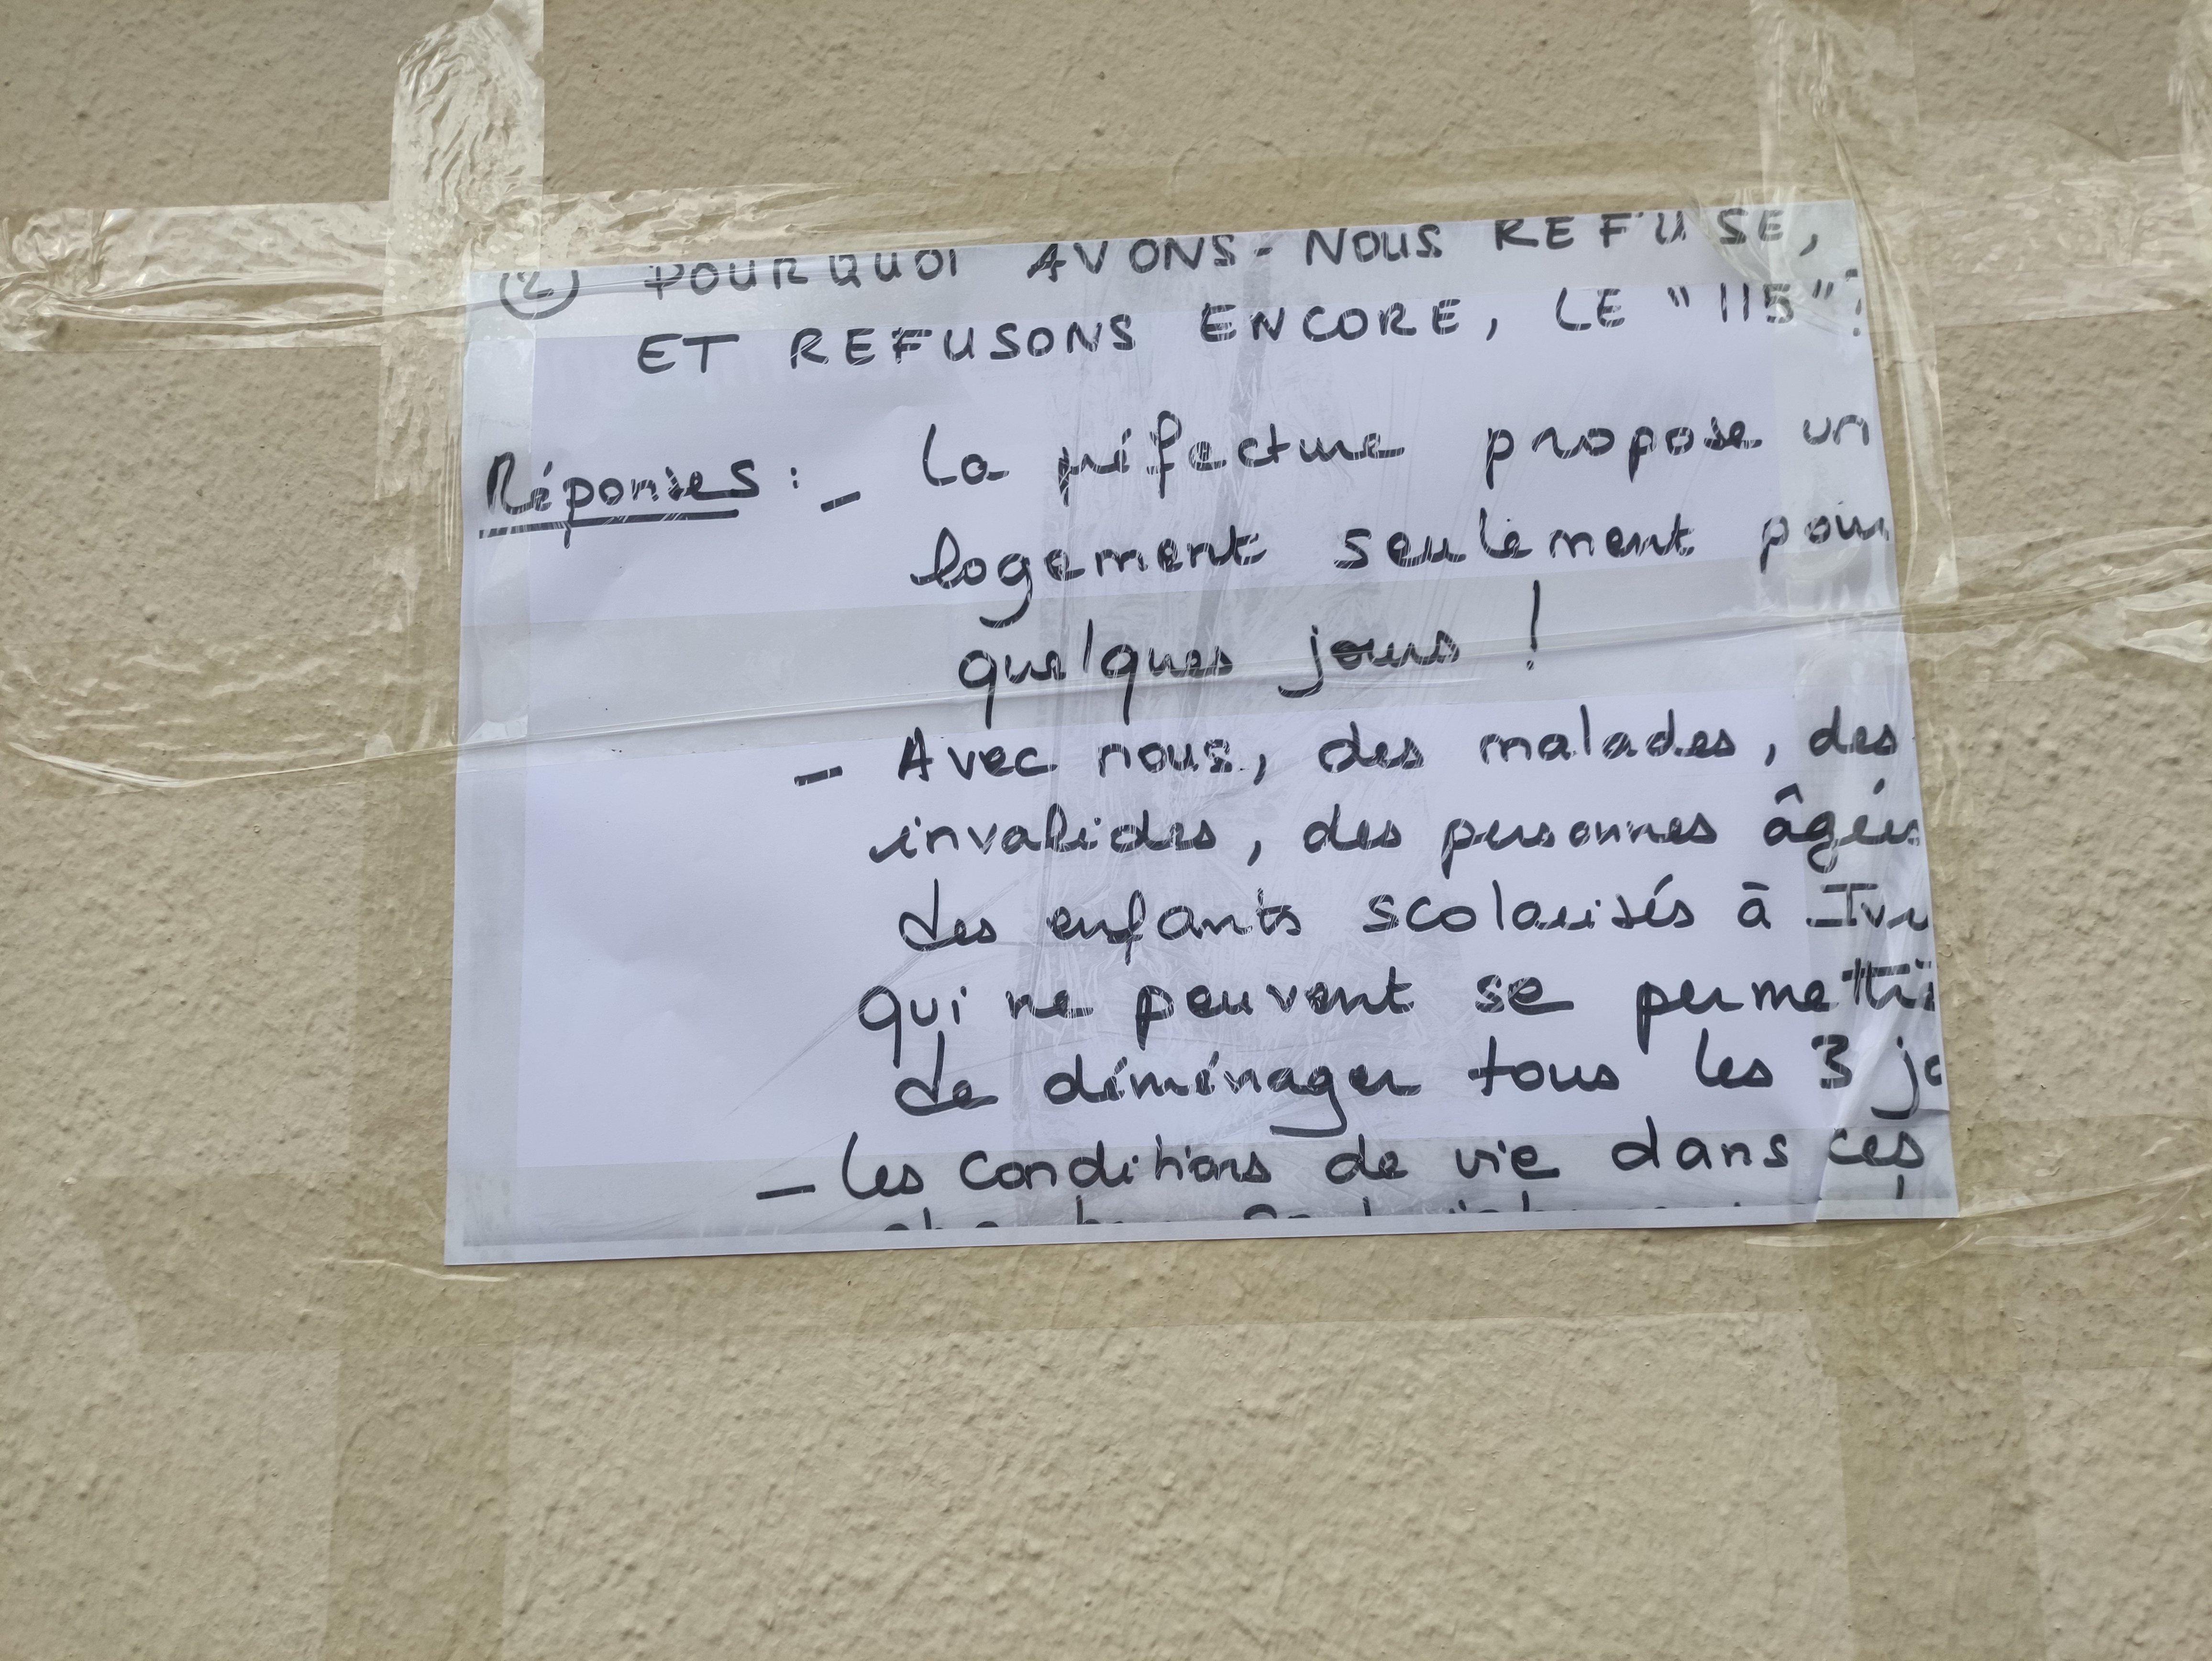 ② POURQUOI AVONS-NOUS REFUSE,
ET REFUSONS ENCORE, LE "115"?
Réponses : - La préfecture propose un
logement seulement pour
quelques jours !
- Avec nous, des malades, des
invalides, des personnes âgées
des enfants scolarisés à
qui ne peuvent se permettre
de déménager tous les 3
- les conditions de vie dans ces